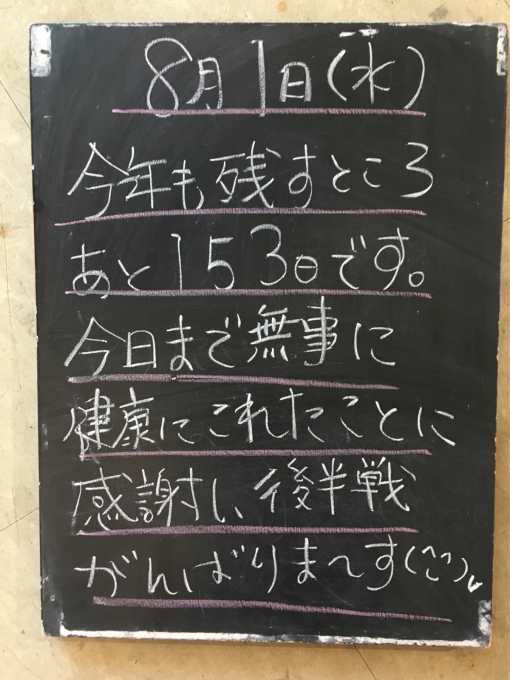 8月1日(水)
今年も残すところ
あと153日です。
今日まで無事に
健康にこれたことに
感謝し、後半戦
がんばりま〜す(^^)v